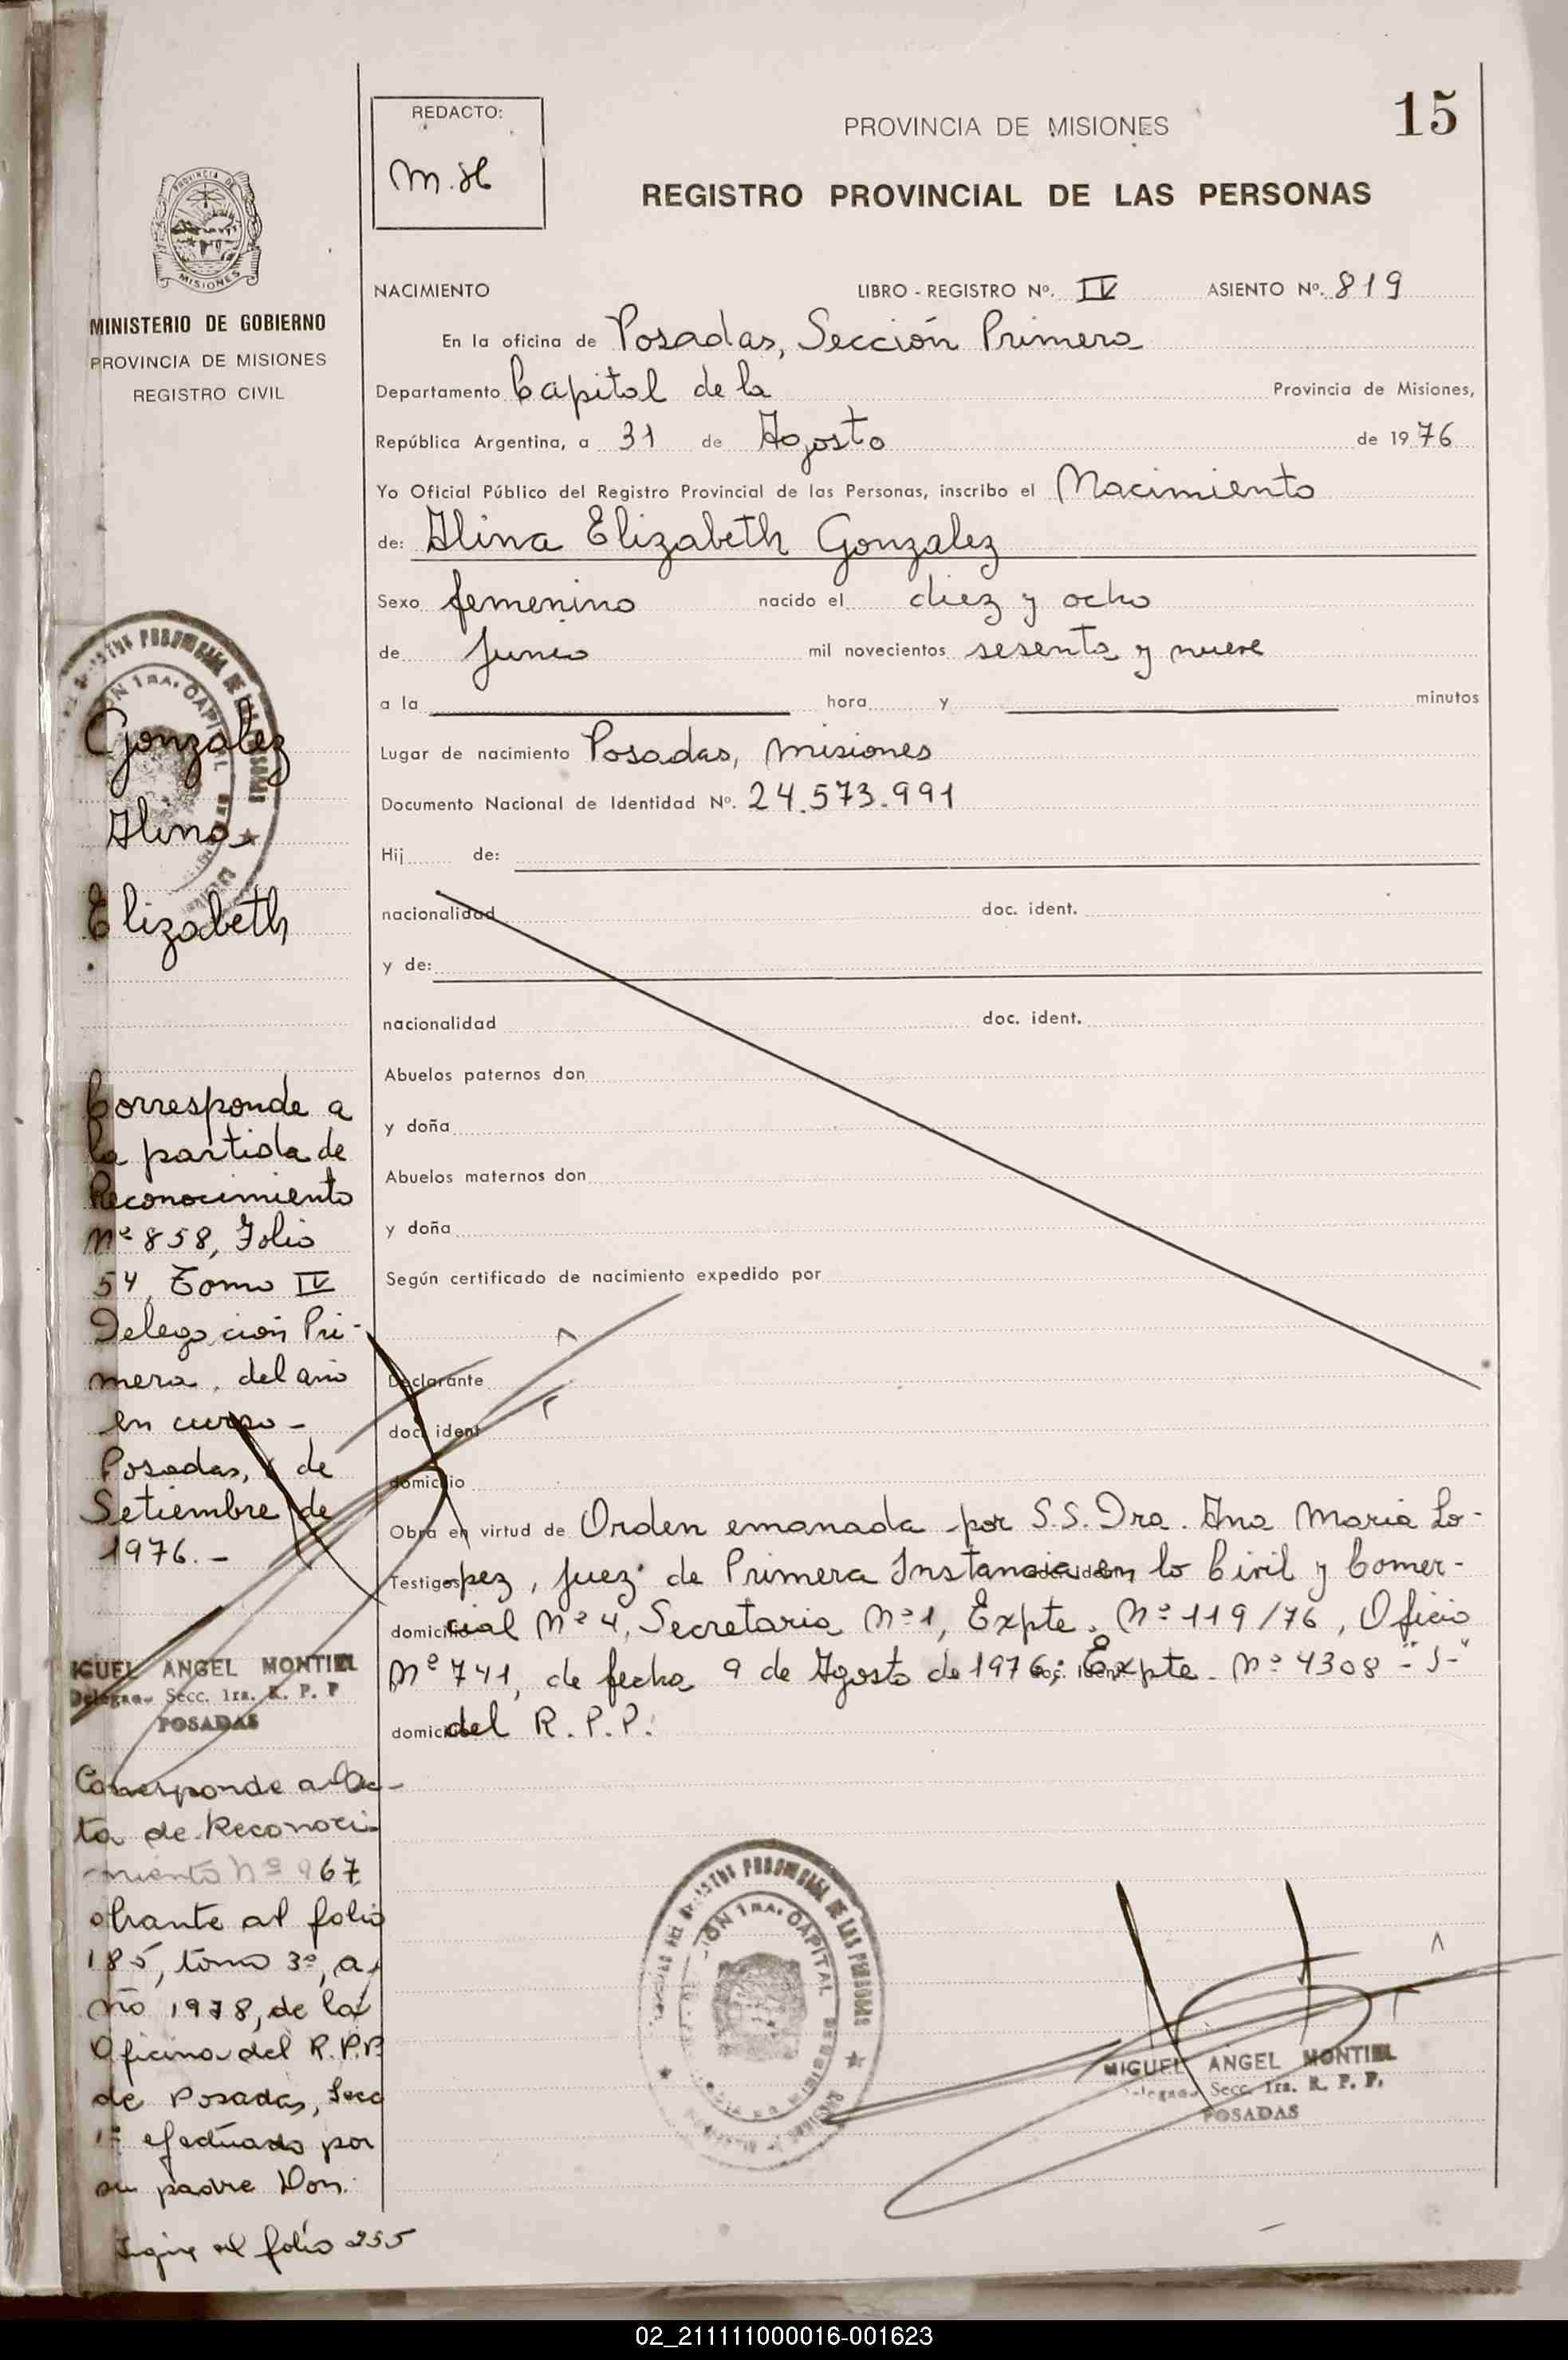 REDACTO:
M.H
PROVINCIA DE MISIONES
15
REGISTRO PROVINCIAL DE LAS PERSONAS
PROVINCIA DE
MISIONES
MINISTERIO DE GOBIERNO
PROVINCIA DE MISIONES
REGISTRO CIVIL
NACIMIENTO LIBRO - REGISTRO Nº. IV ASIENTO Nº. 819
En la oficina de Posadas, Sección Primera
Departamento Capital de la Provincia de Misiones,
República Argentina, a 31 de Agosto de 1976
Yo Oficial Público del Registro Provincial de las Personas, inscribo el Nacimiento
de: Alina Elizabeth Gonzalez
Sexo femenino nacido el diez y ocho
de Junio mil novecientos sesenta y nueve
a la hora y minutos
Lugar de nacimiento Posadas, Misiones
Documento Nacional de Identidad Nº. 24.573.991
Hij de:
nacionalidad doc. ident.
y de:
nacionalidad doc. ident.
Abuelos paternos don
y doña
Abuelos maternos don
y doña
Según certificado de nacimiento expedido por
Declarante
doc. ident
domicilio
Obra en virtud de Orden emanada por S.S. Dra. Ana Maria Lo-
Testigos pez, Juez de Primera Instancia en lo Civil y Comer-
domicilio cial Nº 4, Secretaria Nº 1, Expte. Nº 119/76, Oficio
Nº 741, de fecha 9 de Agosto de 1976; Expte. Nº 4308 -"J-"
domicilio del R.P.P.
MIGUEL ANGEL MONTIEL
Delegado Secc. 1ra. R. P. P.
POSADAS
Gonzalez
Alina
Elizabeth
Corresponde a
la partida de
Reconocimiento
Nº 858, Folio
54, Tomo IV
Delegación Pri-
mera, del año
en curso -
Posadas, de
Setiembre de
1976.-
MIGUEL ANGEL MONTIEL
Delegado Secc. 1ra. R. P. P
POSADAS
Corresponde al Ac-
ta de Reconoci-
miento Nº 967
obrante al folio
185, tomo 3º, a-
ño 1978, de la
Oficina del R.P.P.
de Posadas, Secc
1º efectuado por
su padre Don.
Sigue al folio 255
02_211111000016-001623